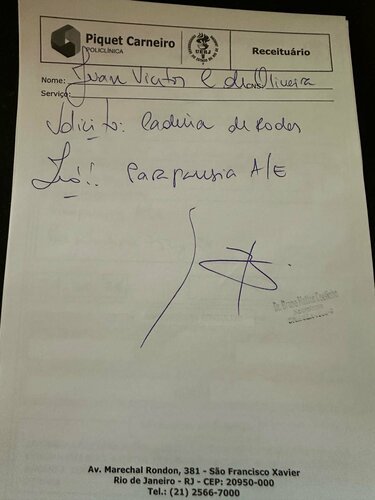 Piquet Carneiro
POLICLÍNICA
UERJ
Receituário
Nome: Juan Victor C de Oliveira
Serviço:
Solicito: Cadeira de Rodas
Paraparesia A/E
Av. Marechal Rondon, 381 - São Francisco Xavier
Rio de Janeiro - RJ - CEP: 20950-000
Tel.: (21) 2566-7000